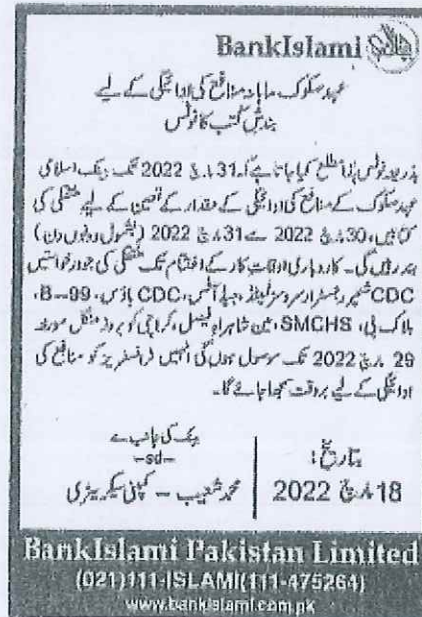 BankIslami
عہد سکوک ماہانہ منافع کی ادائیگی کے لیے
بندش کتب کا نوٹس
بذریعہ نوٹس ہٰذا مطلع کیا جاتا ہے کہ 31 مارچ 2022 تک بینک اسلامی
عہد سکوک کے منافع کی ادائیگی کے مقدار کے تعین کے لیے منتقلی کی
کتابیں، 30 مارچ 2022 سے 31 مارچ 2022 (بشمول دونوں دن)
بند رہیں گی۔ کاروباری اوقات کار کے اختتام تک منتقلی کی جو درخواستیں
CDC شیئر رجسٹرار سروسز لمیٹڈ، ہیڈ آفس، CDC ہاؤس، 99-B،
بلاک بی، SMCHS، مین شاہراہ فیصل، کراچی کو بروز منگل مورخہ
29 مارچ 2022 تک موصول ہوں گی انہیں ٹرانسفریز کو منافع کی
ادائیگی کے لیے بروقت سمجھا جائے گا۔
بینک کی جانب سے
-sd-
محمد شعیب - کمپنی سیکریٹری
بتاریخ:
18 مارچ 2022
BankIslami Pakistan Limited
(021)111-ISLAMI(111-475264)
www.bankislami.com.pk